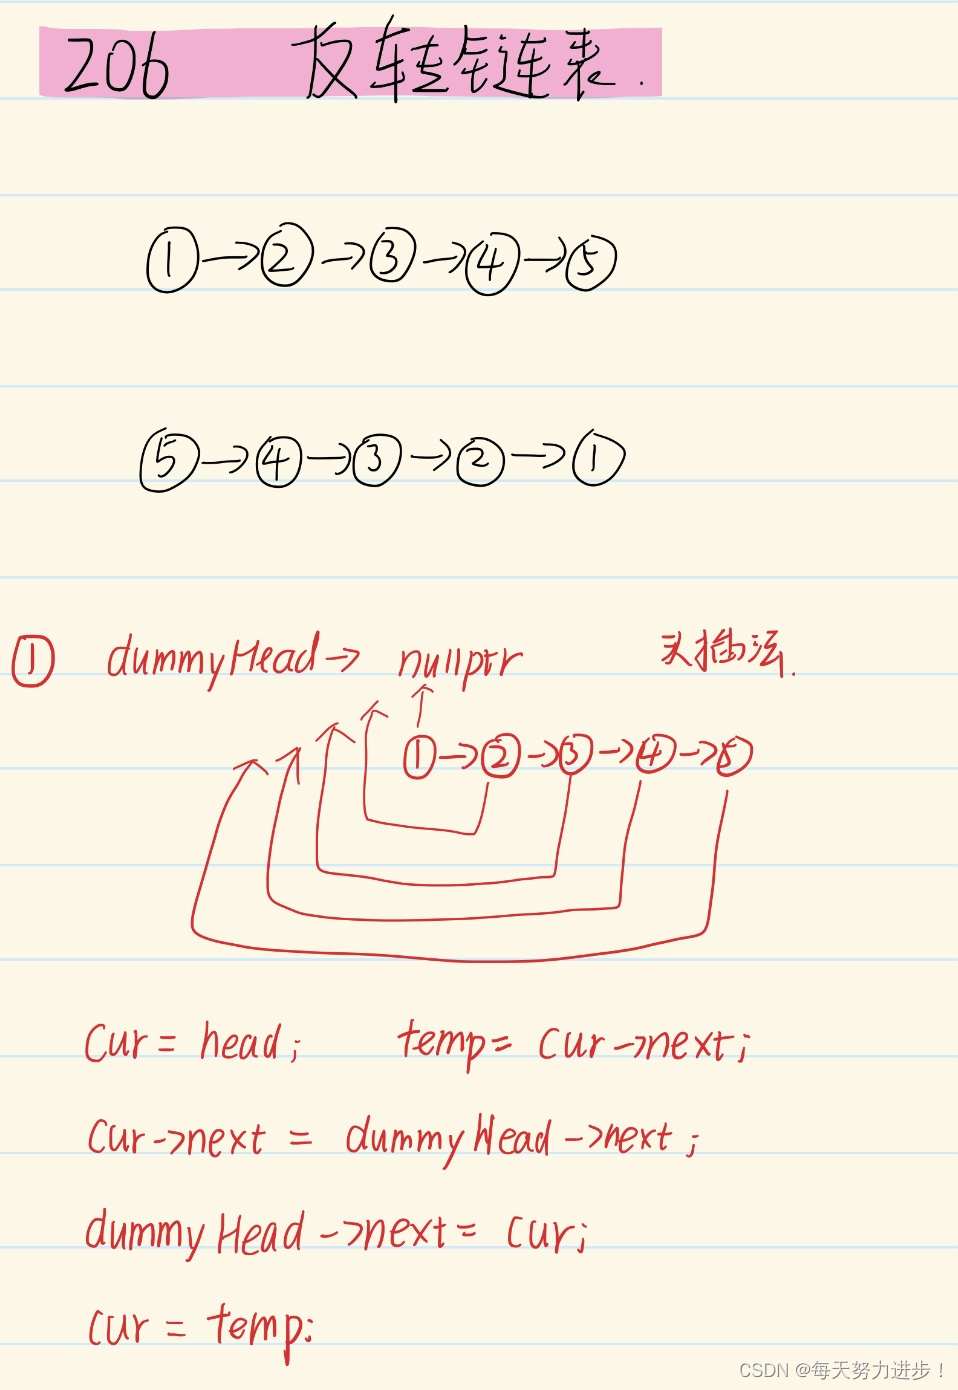 206 反转链表.
①→②→③→④→⑤
⑤→④→③→②→①
① dummyHead→ nullptr 头插法.
①→②→③→④→⑤
Cur = head; temp = Cur→next;
Cur→next = dummyHead→next;
dummyHead→next = Cur;
Cur = temp:
CSDN @每天努力进步！